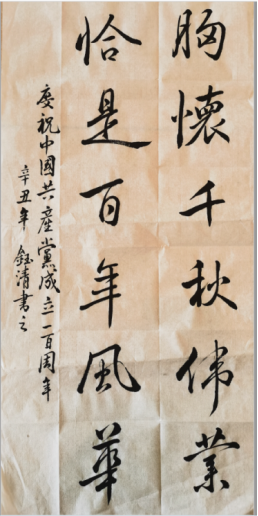 胸懷千秋偉業
恰是百年風華
慶祝中國共產黨成立一百周年
辛丑年 鈺清書之